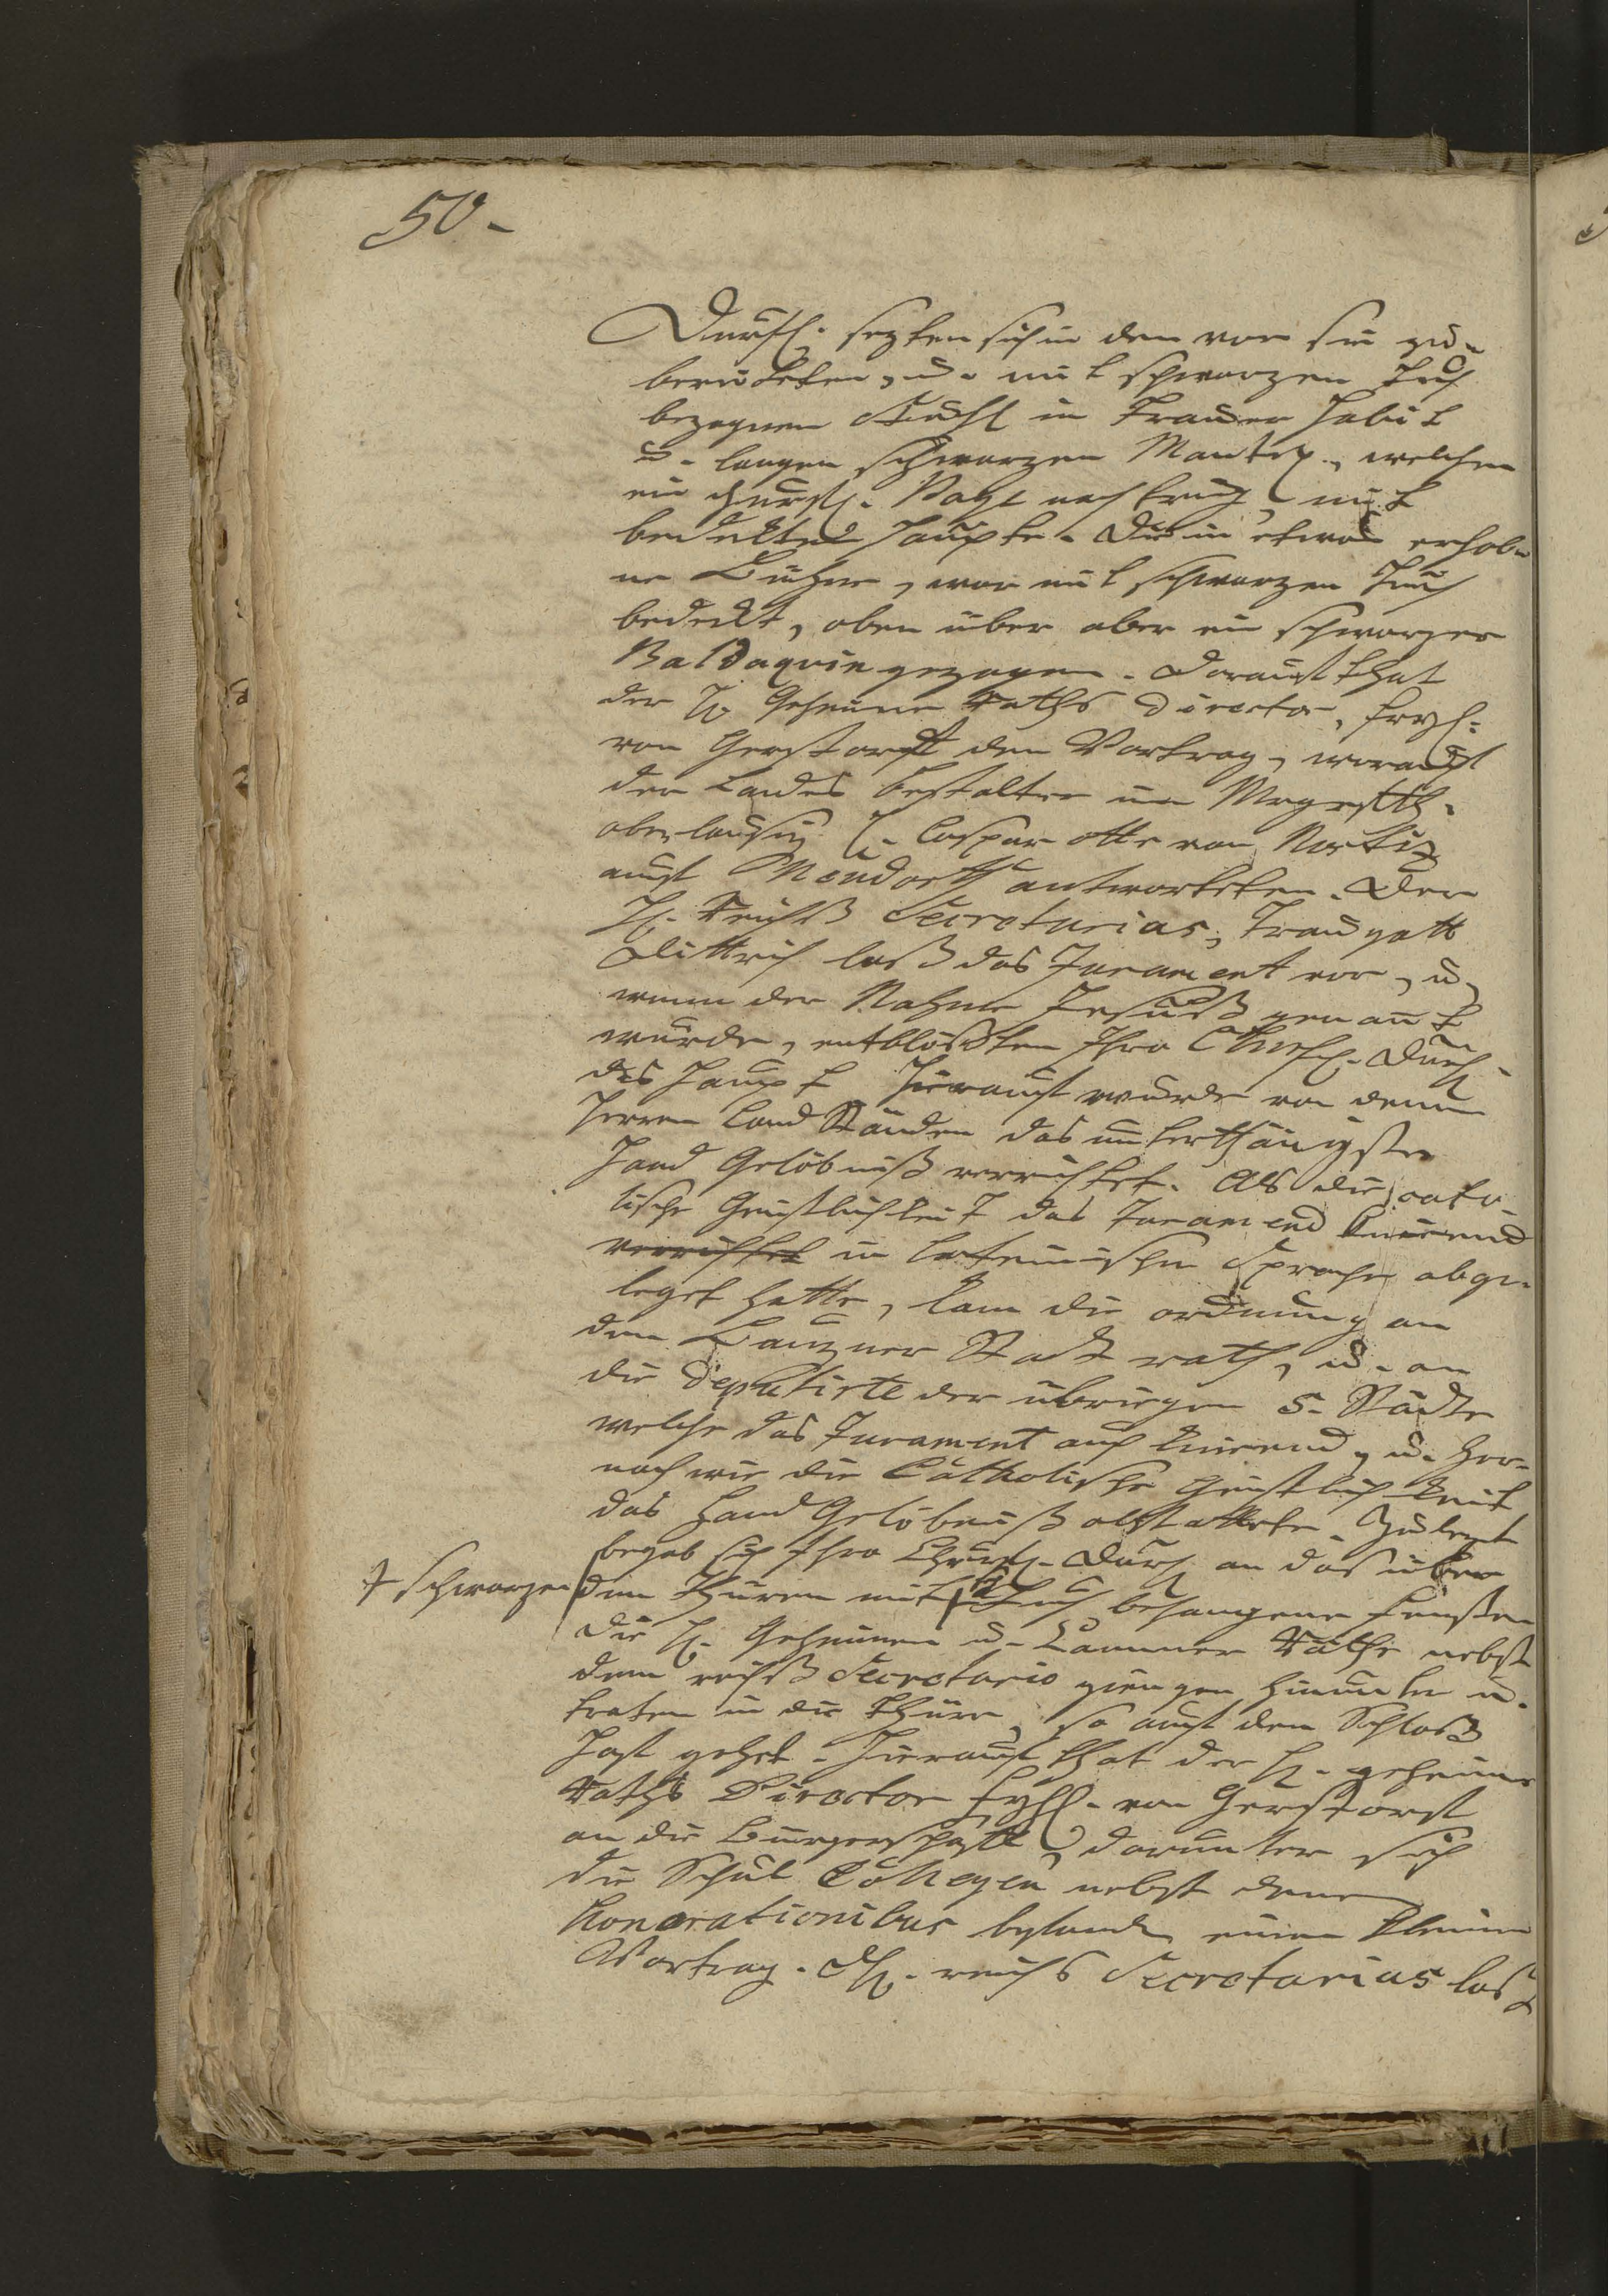 50.
Durchl. sezten sich in den vor sie zu-
bereiteten, u. mit schwarzen Tuch
bezognen Stuhl in Trauer Habit
u. langen schwarzen Mantel, welchen
ein Churfl. Page nach trug, mit
bedekten Haupte. Die in etwas erhob-
ne Bühne, war mit schwarzen Tuch
bedekt, oben über aber ein schwarzer
Baldaquin gezogen. Darauf that
der H. Geheime Raths Director, Freyh.
von Gerstorff den Vortrag, worauf
der Landes Bestalter im Marggrafth.
oberlausiz H. Caspar otto von Nostiz
auf Möndorff antworteten. Der
H. Reichß Secretarius, Traugott
Dittrich laß das Jurament vor, u.
wenn der Nahme Jesus genant
wurde, entblösten Ihro Churfl. Durchl.
das Haupt Hierauf wurde von denen
Herren Land Ständen das unterthänigste
Hand Gelöbniß verrichtet. Als die cato-
lische Geistlichkeit das Jurament knieend
verrichtet in lateinischen Sprache abge-
leget hatte, kam die ordnung an
den Bauzner Stadt rath, u. an
die Deputirte der übrigen 5. Städte
welche das Jurament auch knieend, u. her-
nach wie die Catholische Geistlichkeit
das Hand Gelöbniß abstatteten. Zulezt
begab sich Ihro Churfl. Durchl. an das über
† schwarzen
den Thüren mit † Tuch behangene Fenster
die H. Geheimen u. Cammer Räthe nebst
dem reichß Secretario giengen hinunter u.
traten in die Thüre, so auf den Schloß
Hoff gehet. Hierauf that der H. geheime
Raths Director Freyh. von Gerstorff
an die Bürgerschafft, darunter sich
die Schul Collegen nebst denen
Honorationibus befanden einen kleinen
Vortrag. H. reichs Secretarius laß